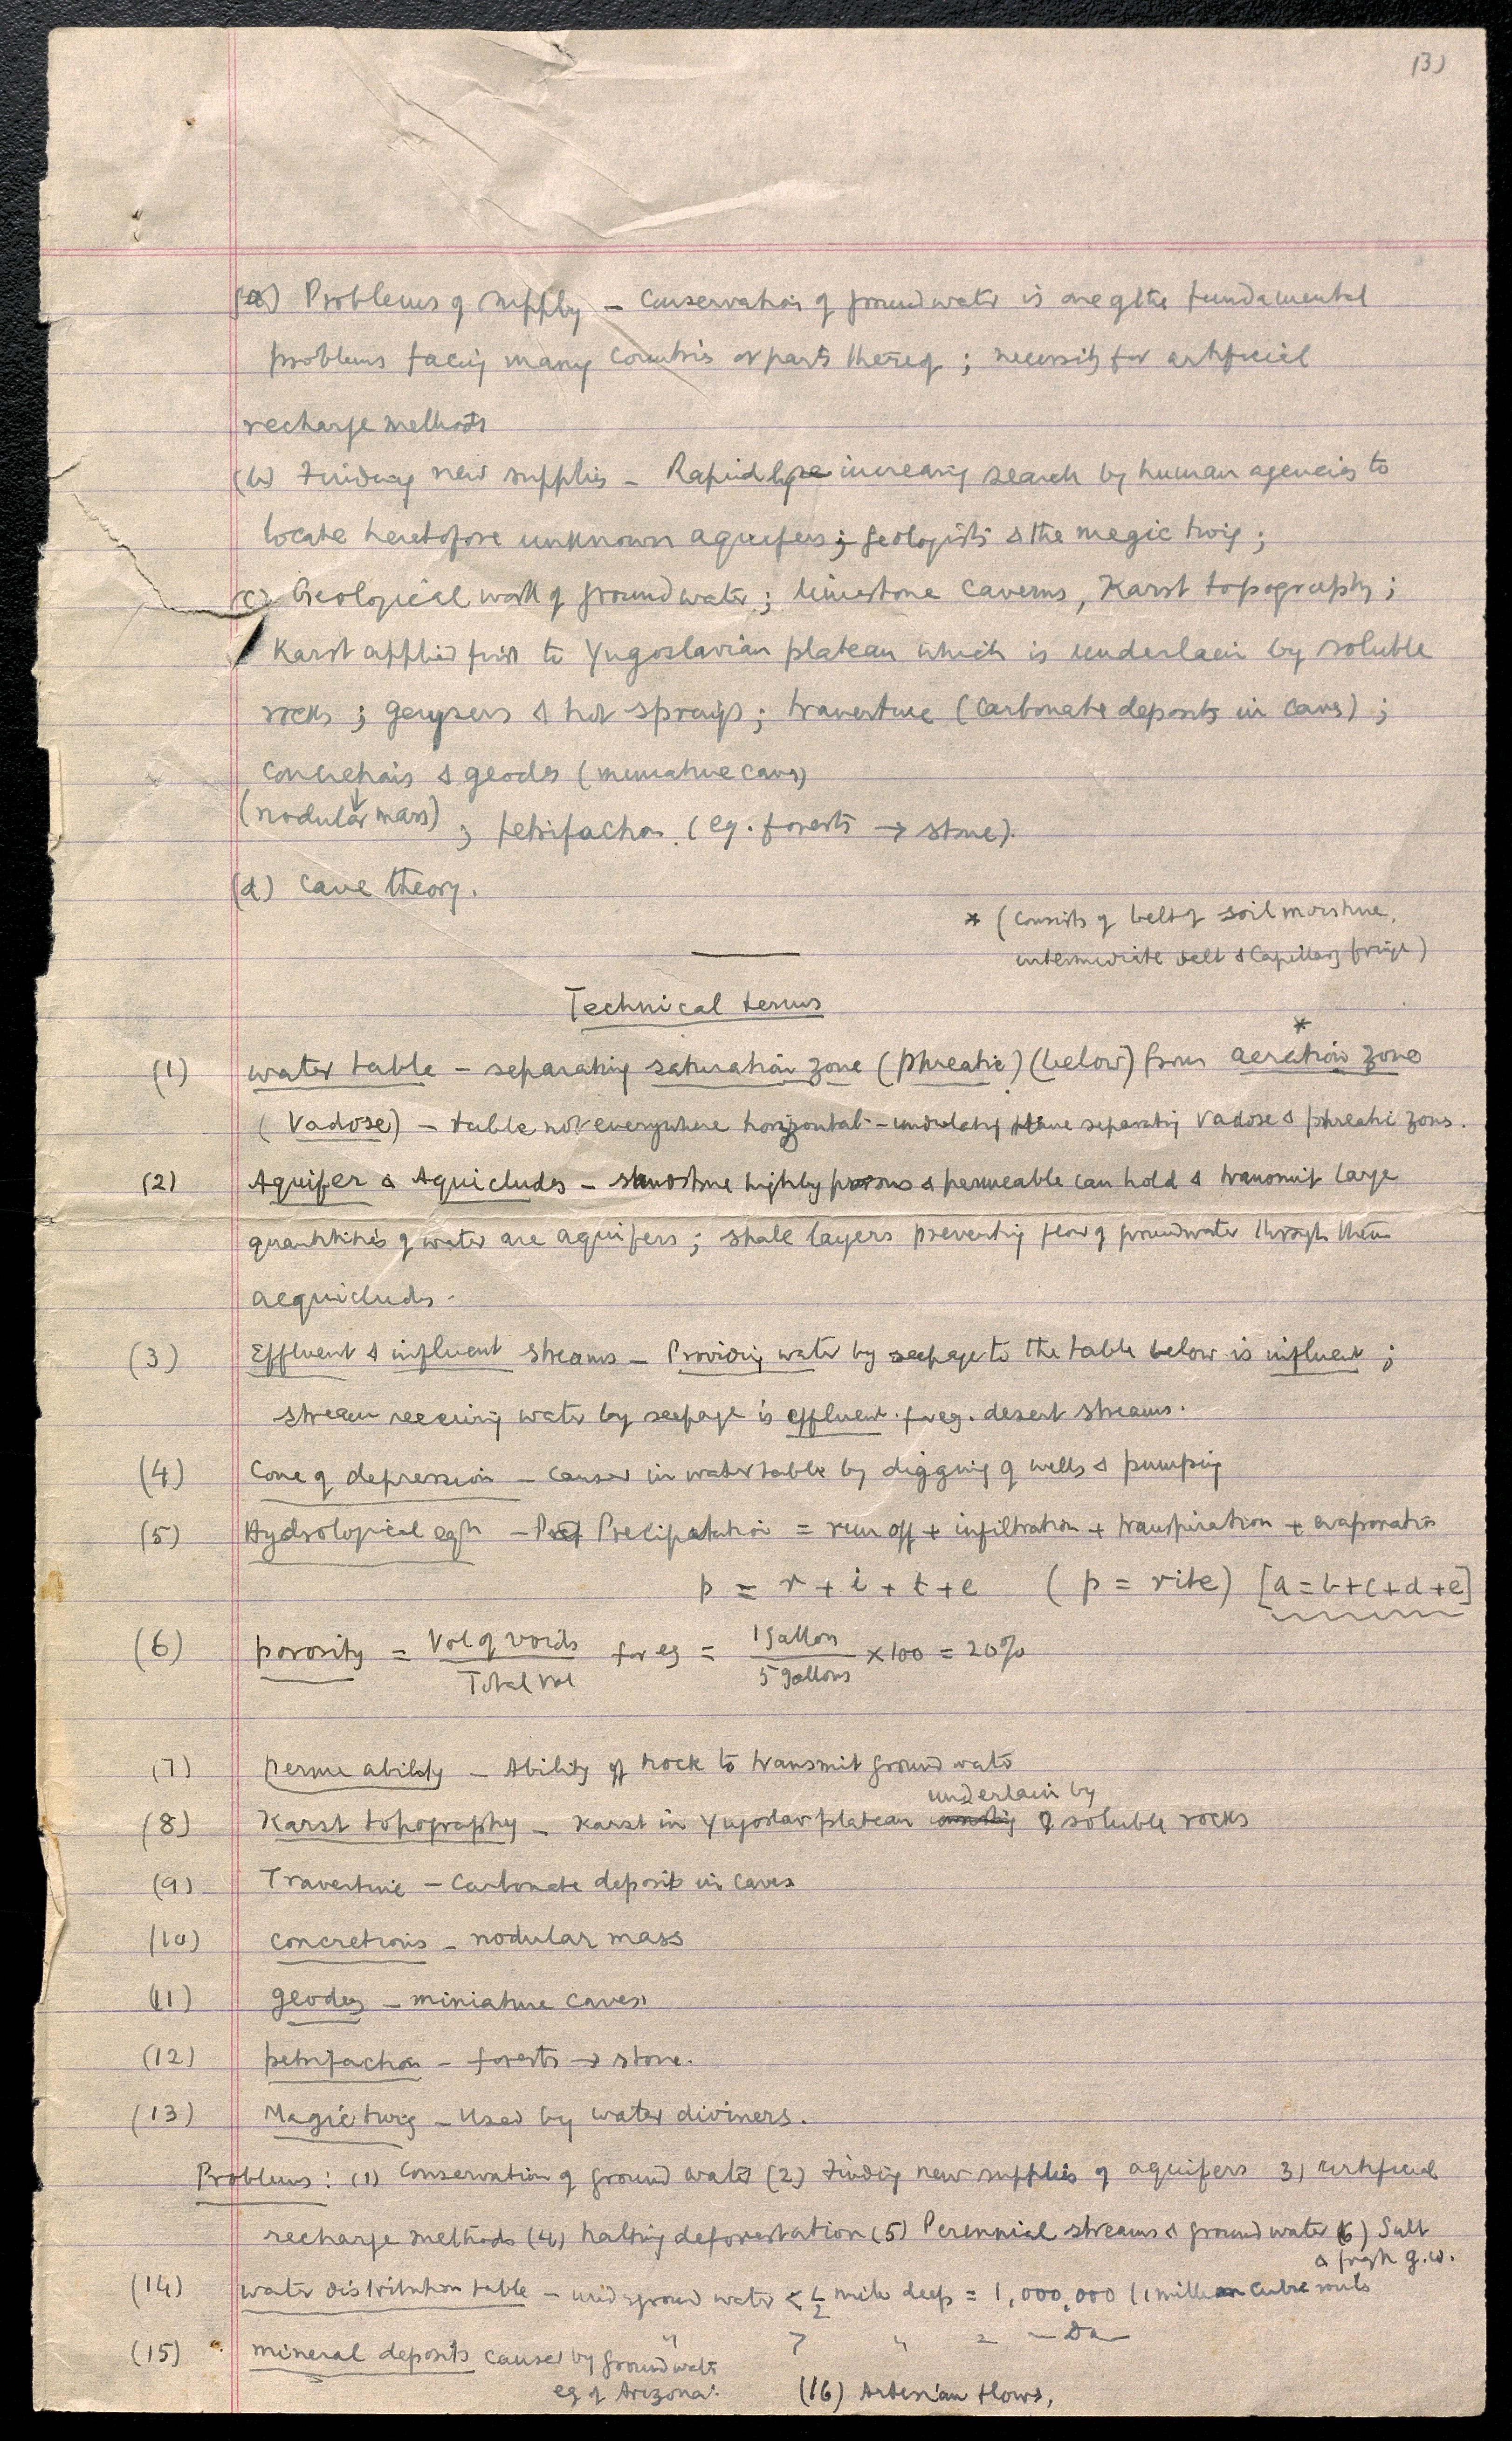 (3)
(a) Problems of supply – Conservation of groundwater is one of the fundamental
problems facing many countries or parts thereof ; necessity for artificial
recharge methods
(b) Finding new supplies – Rapidly increasing search by human agencies to
locate heretofore unknown aquifers; geologists & the magic twig ;
(c) Geological work of groundwater ; limestone caverns, Karst topography ;
Karst applied first to Yugoslavian plateau which is underlain by soluble
rocks ; geysers & hot springs ; travertine (carbonate deposits in caves) ;
Concretions & geodes (miniature caves)
(nodular mass) ; petrifaction (eg. forests → stone).
(d) Cave theory.
* (consists of belt of soil moisture,
intermediate belt & Capillary fringe)
Technical terms
(1) water table – separating saturation zone (phreatic) (below) from aeration zone *
(Vadose) – table not everywhere horizontal – undulating plane separating Vadose & phreatic zones.
(2) Aquifer & Aquicludes – sandstone highly porous & permeable can hold & transmit large
quantities of water are aquifers ; shale layers preventing flow of groundwater through them
aequicludes.
(3) Effluent & influent streams – Providing water by seepage to the table below is influent ;
stream receiving water by seepage is effluent. for eg. desert streams.
(4) Cone of depression – caused in water table by digging of wells & pumping
(5) Hydrological eqn – Precipitation = run off + infiltration + transpiration + evaporation
p = r + i + t + e (p = rite) [a = b+c+d+e]
(6) porosity = Vol of voids / Total vol for eg = 1 gallon / 5 gallons × 100 = 20%
(7) Permeability – Ability of rock to transmit ground water
underlain by
(8) Karst topography – Karst in Yugoslav plateau of soluble rocks
(9) Travertine – Carbonate deposits in caves
(10) concretions – nodular mass
(11) geodes – miniature caves
(12) petrifaction – forests → stone.
(13) Magic twig – Used by water diviners.
Problems : (1) Conservation of ground water (2) Finding new supplies of aquifers 3) Artificial
recharge methods (4) halting deforestation (5) Perennial streams & ground water (6) Salt
& fresh g.w.
(14) water distribution table – undrground water < ½ mile deep = 1,000,000 (1 million cubic miles
" > " = – Do –
(15) mineral deposits caused by groundwater
eg of Arizona.
(16) Artesian flows,